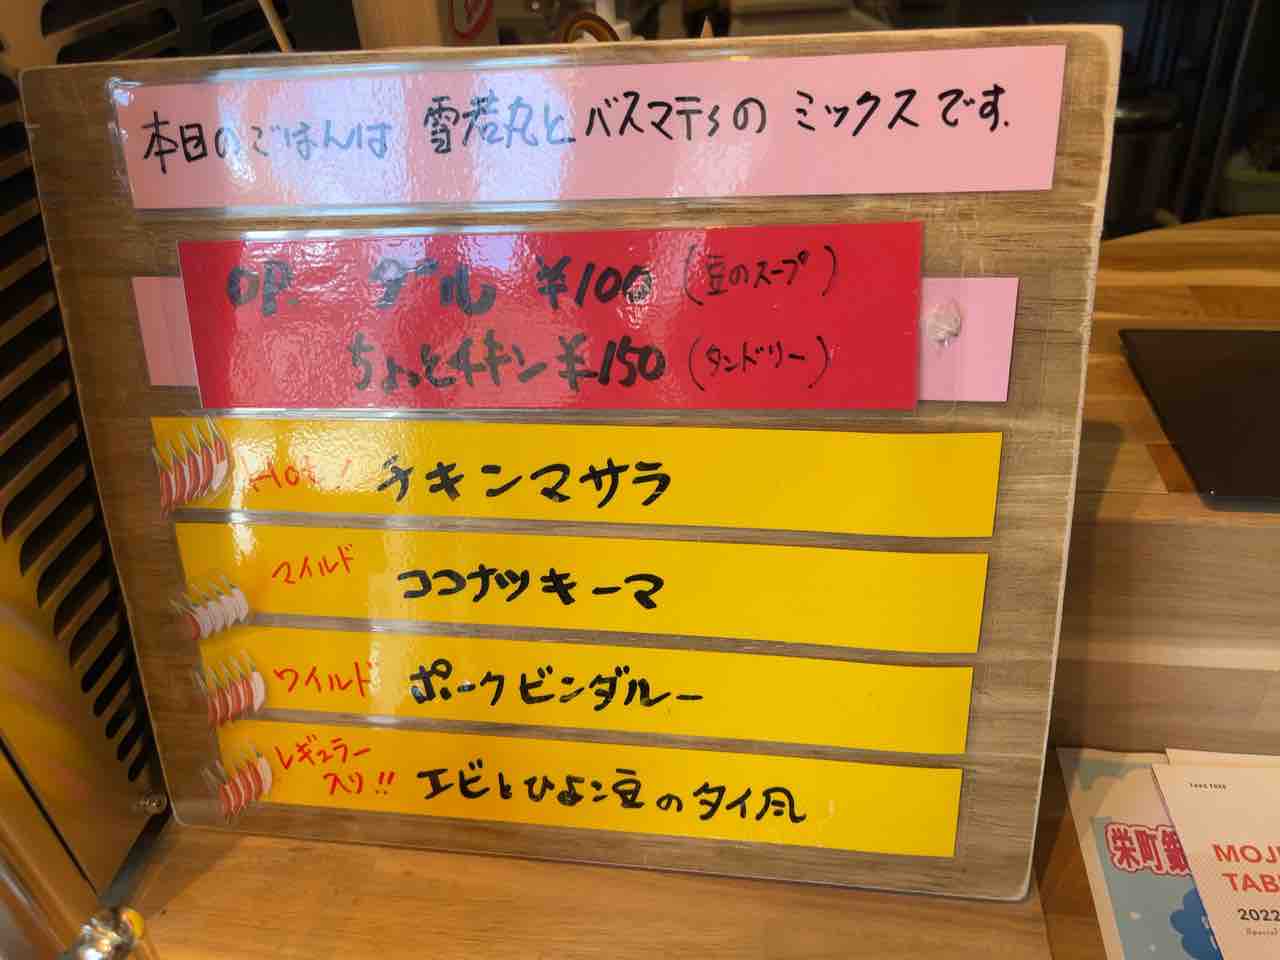 本日のごはんは 雪若丸と バスマティの ミックスです.
OP. ダール ¥100 (豆のスープ)
ちょっとチキン ¥150 (タンドリー)
Hot! チキンマサラ
マイルド ココナツキーマ
ワイルド ポークビンダルー
レギュラー
入り!! エビとひよこ豆のタイ風
栄町
MOJ
TAB
2022